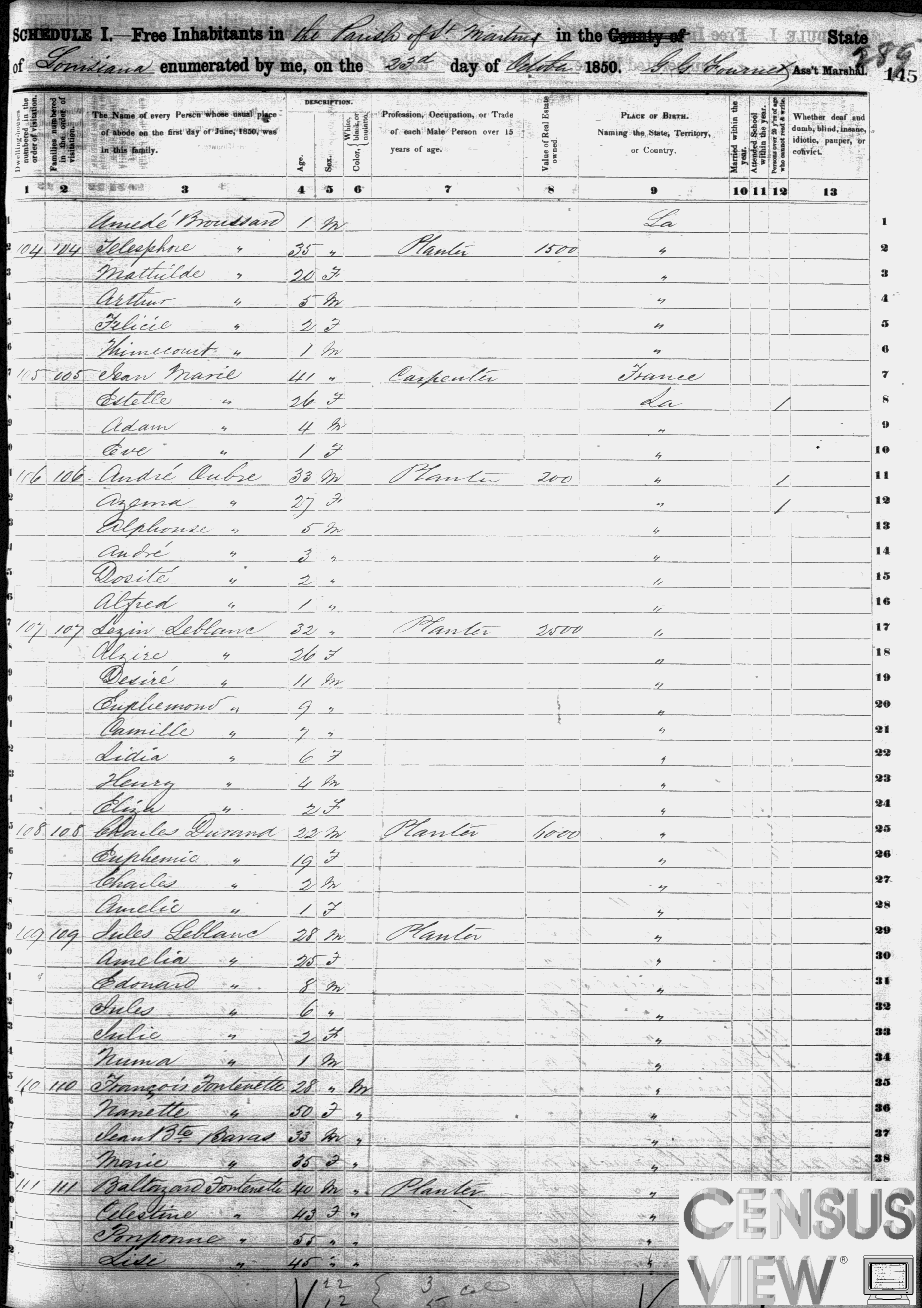 SCHEDULE I.—Free Inhabitants in the Parish of St Martins in the County of State
of Louisiana enumerated by me, on the 23d day of October 1850. Ass't Marshal. 289 145
Dwelling-houses numbered in the order of visitation. Families numbered in the order of visitation. The Name of every Person whose usual place of abode on the first day of June, 1850, was in this family. DESCRIPTION. Age. Sex. Color, { White, black, or mulatto. Profession, Occupation, or Trade of each Male Person over 15 years of age. Value of Real Estate owned PLACE OF BIRTH. Naming the State, Territory, or Country. Married within the year. Attended School within the year. Persons over 20 y'rs of age who cannot read & write. Whether deaf and dumb, blind, insane, idiotic, pauper, or convict.
1 2 3 4 5 6 7 8 9 10 11 12 13
1 Amedé Broussard 1 M La 1
2 104 104 Telesphore " 35 " Planter 1500 " 2
3 Mathilde " 20 F " 3
4 Arthur " 5 M " 4
5 Felicie " 2 F " 5
6 " 1 M " 6
7 105 105 Jean Marie 41 " Carpenter France 7
8 Estelle " 26 F La 1 8
9 Adam " 4 M " 9
0 Eve " 1 F " 10
1 106 106 André Oubre 33 M Planter 200 " 1 11
2 Azema " 27 F " 1 12
3 Alphonse " 5 M " 13
4 André " 3 " " 14
5 Dosité " 2 " " 15
6 Alfred " 1 " " 16
7 107 107 Lezin Leblanc 32 " Planter 2500 " 17
8 Alzire " 26 F " 18
9 Desiré " 11 M " 19
0 Euphemond " 9 " " 20
1 Camille " 7 " " 21
2 Lidia " 6 F " 22
3 Henry " 4 M " 23
4 Eliza " 2 F " 24
5 108 108 Charles Durand 22 M Planter 6000 " 25
6 Euphemie " 19 F " 26
7 Charles " 2 M " 27
8 Amelie " 1 F " 28
9 109 109 Jules Leblanc 28 M Planter " 29
0 Amelia " 25 F " 30
1 Edouard " 8 M " 31
2 Jules " 6 " " 32
3 Julie " 2 F " 33
4 Numa " 1 M " 34
5 110 110 François Fontenette 28 " M " 35
6 Nanette " 50 F " " 36
7 Jean Bte Baras 33 M " " 37
8 Marie " 35 F " " 38
9 111 111 Baltazard Fontenette 40 M " Planter "
Celestine " 43 F " "
1 Pouponne " 55 " " "
2 Lise " 45 " " "
22 { 3
12
CENSUS
VIEW®